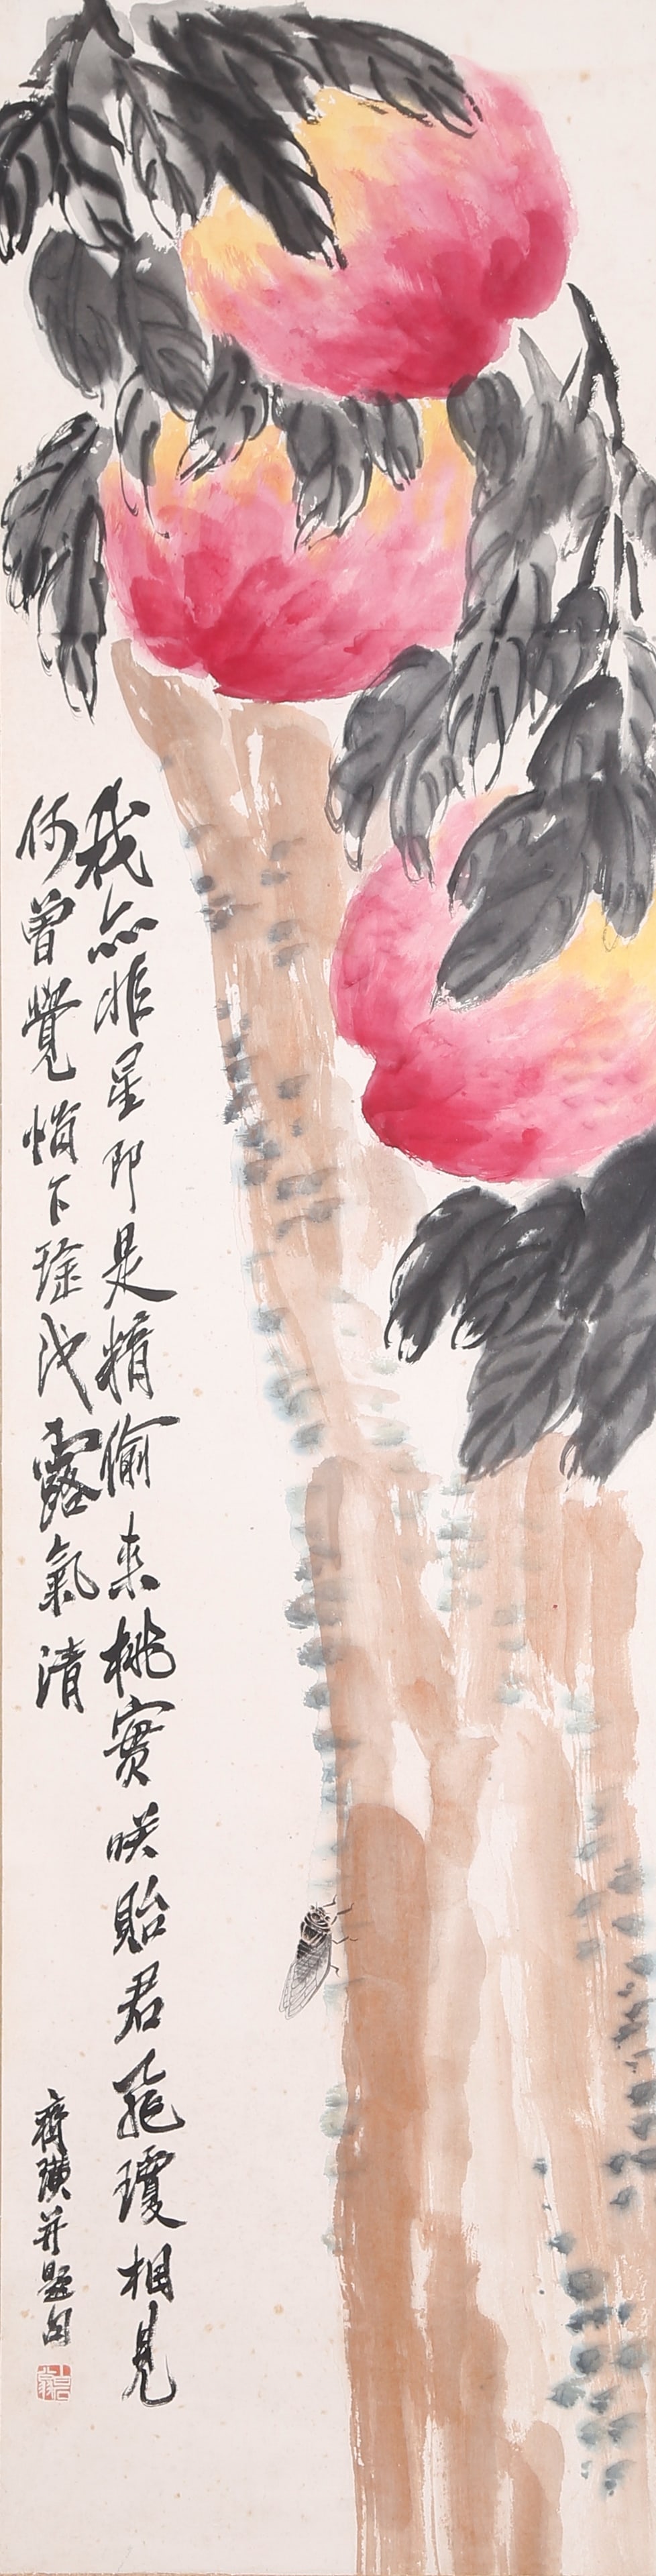 我亦非星即是精偷来桃實咲貽君飛瓊相見
何曾覺悄下瑤池露氣清
齊璜并題句
白石翁